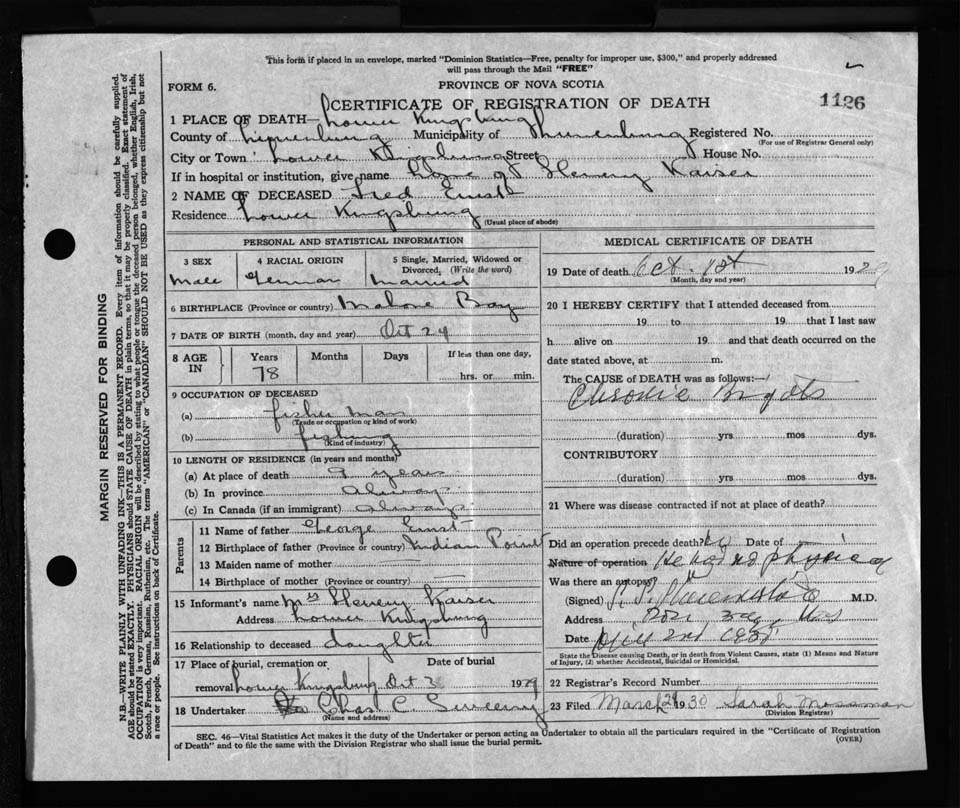 This form if placed in an envelope, marked "Dominion Statistics—Free, penalty for improper use, $300," and properly addressed
will pass through the Mail "FREE"
FORM 6.
PROVINCE OF NOVA SCOTIA
CERTIFICATE OF REGISTRATION OF DEATH
1126
1 PLACE OF DEATH— Lower Kingsburg
County of Lunenburg Municipality of Lunenburg Registered No.
(For use of Registrar General only)
City or Town Lower Kingsburg Street House No.
If in hospital or institution, give name Home of Henery Kaiser
2 NAME OF DECEASED Fred Ernst
Residence Lower Kingsburg
(Usual place of abode)
PERSONAL AND STATISTICAL INFORMATION
3 SEX 4 RACIAL ORIGIN 5 Single, Married, Widowed or
Divorced, (Write the word)
Male German Married
6 BIRTHPLACE (Province or country) Mahone Bay
7 DATE OF BIRTH (month, day and year) Oct 24
8 AGE IN Years Months Days If less than one day,
78 hrs. or min.
9 OCCUPATION OF DECEASED
(a) fisher man
(Trade or occupation or kind of work)
(b) fishing
(Kind of industry)
10 LENGTH OF RESIDENCE (in years and months)
(a) At place of death 9 year
(b) In province always
(c) In Canada (if an immigrant) always
Parents
11 Name of father George Ernst
12 Birthplace of father (Province or country) Indian Point
13 Maiden name of mother —
14 Birthplace of mother (Province or country) —
15 Informant's name Mrs Henery Kaiser
Address Lower Kingsburg
16 Relationship to deceased daughter
17 Place of burial, cremation or Date of burial
removal Lower Kingsburg Oct 3 1929
18 Undertaker Chas C. Sweeny
(Name and address)
MEDICAL CERTIFICATE OF DEATH
19 Date of death Oct. 1st 1929
(Month, day and year)
20 I HEREBY CERTIFY that I attended deceased from
19 to 19 that I last saw
h alive on 19 and that death occurred on the
date stated above, at m.
The CAUSE of DEATH was as follows:—
Chronic Brights
(duration) yrs mos dys.
CONTRIBUTORY
(duration) yrs mos dys.
21 Where was disease contracted if not at place of death?
Did an operation precede death? No Date of
Nature of operation He had no physician
Was there an autopsy
(Signed) M.D.
Address
Date 2nd
State the Disease causing Death, or in death from Violent Causes, state (1) Means and Nature
of Injury, (2) whether Accidental, Suicidal or Homicidal.
22 Registrar's Record Number
23 Filed March 29 1930 Sarah Mossman
(Division Registrar)
SEC. 46—Vital Statistics Act makes it the duty of the Undertaker or person acting as Undertaker to obtain all the particulars required in the "Certificate of Registration
of Death" and to file the same with the Division Registrar who shall issue the burial permit.
(OVER)
MARGIN RESERVED FOR BINDING
N.B.—WRITE PLAINLY WITH UNFADING INK—THIS IS A PERMANENT RECORD. Every item of information should be carefully supplied.
AGE should be stated EXACTLY. PHYSICIANS should STATE CAUSE OF DEATH in plain terms, so that it may be properly classified. Exact statement of
OCCUPATION is very important. RACIAL ORIGIN will be described by stating to what people or tongue the deceased person belonged, whether English, Irish,
Scotch, French, German, Russian, Ruthenian, etc. The terms "AMERICAN" or "CANADIAN" SHOULD NOT BE USED as they express citizenship but not
a race or people. See instructions on back of Certificate.